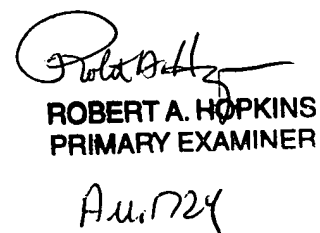 ROBERT A. HOPKINS
PRIMARY EXAMINER
A.U. 1724